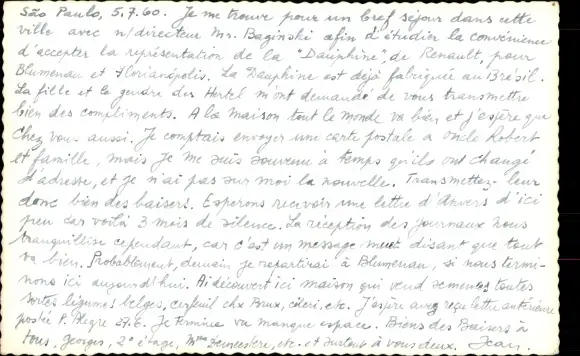 São Paulo, 5.7.60. Je me trouve pour un bref séjour dans cette
ville avec n/directeur Mr. Baginski afin d'étudier la convénience
d'accepter la représentation de la "Dauphine", de Renault, pour
Blumenau et Florianópolis. La Dauphine est dejá fabriquée au Brésil.
La fille et le gendre des Hertel m'ont demandé de vous transmettre
bien des compliments. A la maison tout le monde va bien et j'espère que
chez vous aussi. Je comptais envoyer une carte postale a oncle Robert
et famille, mais je me suis souvenu à temps qu'ils ont changé
d'adresse, et je n'ai pas sur moi la nouvelle. Transmettez-leur
donc bien des baisers. Esperons recevoir une lettre d'Anvers d'ici
peu car voilà 3 mois de silence. La réception des journaux nous
tranquillise cependant, car c'est un message muet disant que tout
va bien. Probablement, demain je repartirai à Blumenau, si nous termi-
nons ici aujourd'hui. Ai découvert ici maison qui vend semences toutes
sortes légumes belges, cerfeuil chx Brux, céleri, etc. J'espère avez reçu lettre antérieure
postée P. Alegre 27.6. Je termine va manque espace. Biens des baisers à
tous, Georges, 2º étage, Mme etc. et surtout à vous deux. Jean.